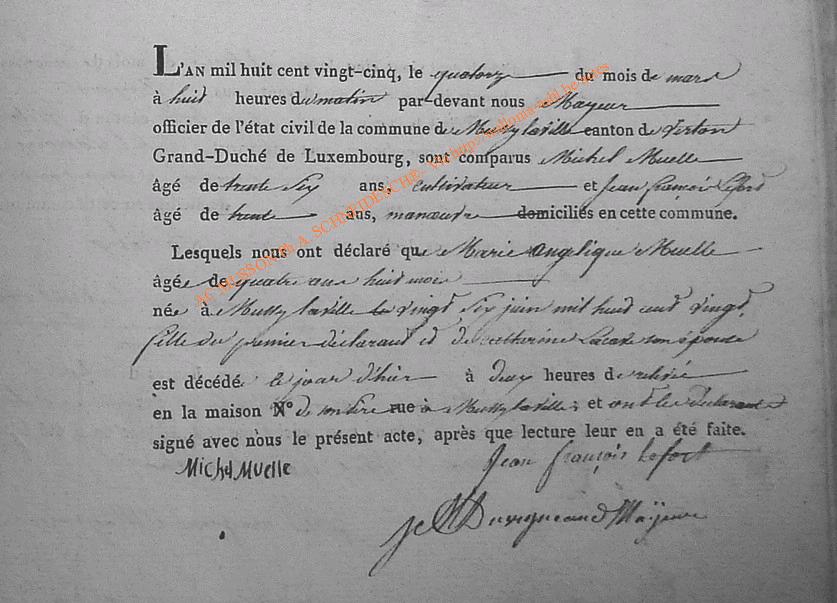 L'AN mil huit cent vingt-cinq, le quatorze du mois de mars
à huit heures du matin par-devant nous Mayeur
officier de l'état civil de la commune de Mussy laville canton de virton
Grand-Duché de Luxembourg, sont comparus Michel Muelle
âgé de trente Six ans, cultivateur et Jean françois Lefort
âgé de trente ans, manoeuvre domiciliés en cette commune.
Lesquels nous ont déclaré que Marie angelique Muelle
âgée de quatre ans huit mois
née à Mussy laville le vingt Six juin mil huit cent vingt,
fille du premier déclarant et de catherine son épouse
est décédée le jour d'hier à deux heures de relevée
en la maison N° de son père rue à Mussy laville; et ont les déclarants
signé avec nous le présent acte, après que lecture leur en a été faite.
Michel Muelle
Jean françois Lefort
Mayeur